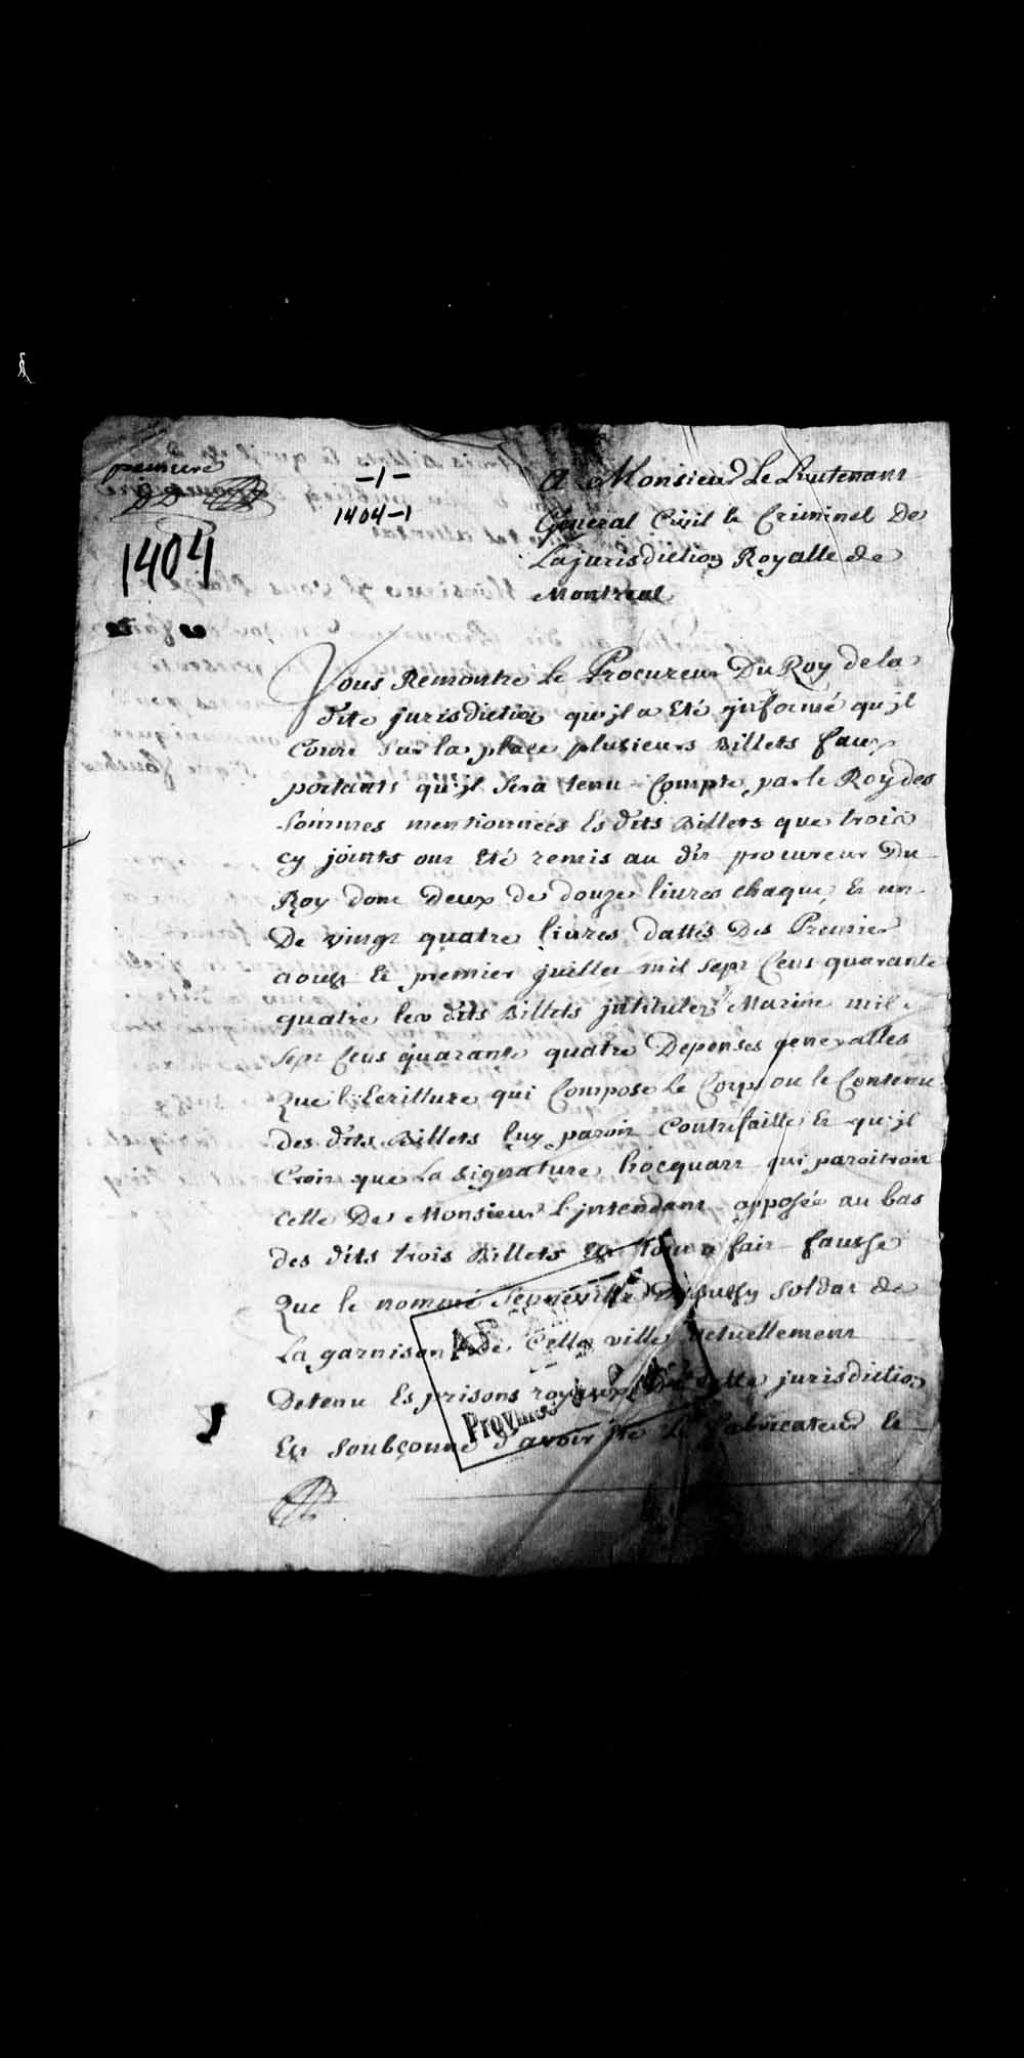 premiere
-1-
1404-1
1404
A Monsieur Le Lieutenant
General Civil & Criminel De
La jurisdiction Royalle de
Montreal
Vous Remontre Le Procureur Du Roy de la
dite jurisdiction qu'jl a Eté jnformé qu'jl
Coure sur la place plusieurs Billets faux
portants qu'jl sera tenu Compte par le Roy des
sommes mentionnées Es dits Billets que trois
cy joints ont Eté remis au dit procureur Du
Roy dont Deux de douze livres chaque, & un
De vingt quatre livres dattés Des Premier
aoust & premier juillet mil sept Cens quarante
quatre les dits Billets jntitulez Marine mil
sept Cens quarante quatre Depenses generalles
Que l'Ecritture qui Compose Le Corps ou le Contenu
des dits Billets luy paroit Contrefaitte & qu'jl
Croit que La signature hocquart qui paroitroit
Celle De Monsieur L'jntendant apposée au bas
des dits trois Billets Est tout a fait fausse
Que le nommé soldat de
La garnison de Cette ville actuellement
Detenu Es prisons royaux De Cette jurisdiction
Est soubçonné d'avoir Eté Le fabricateur &
Province